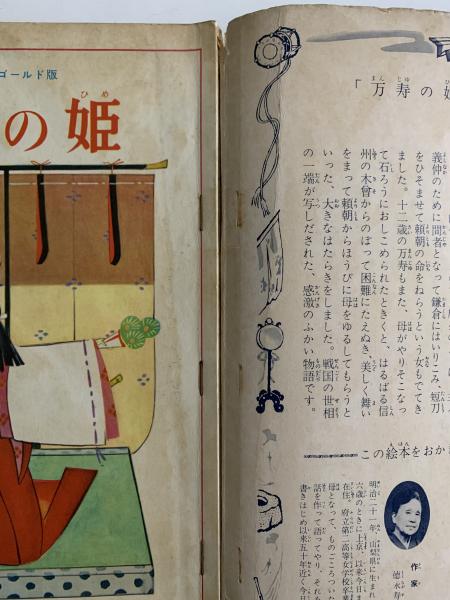 ゴールド版
の姫
「万寿の姫
義仲のために間者となって鎌倉にはいりこみ、短刀
をひそませて頼朝の命をねらうという女もでてき
ました。十二歳の万寿もまた、母がやりそこなっ
て石ろうにおしこめられたときくと、はるばる信
州の木曾からのぼって困難にたえぬき、美しく舞い
をまって頼朝からほうびに母をゆるしてもらうと
いった、大きなはたらきをしました。戦国の世相
の一端が写しだされた、感激のふかい物語です。
この絵本をおか
作家
徳永寿
明治二十一年、山梨県に生まれ
六歳のときに上京、以来今日ま
在住。府立第二高等女学校卒業
母となって、ものごころつい
話を作って語ってやり、それ
書きはじめ以来五十年近く今日